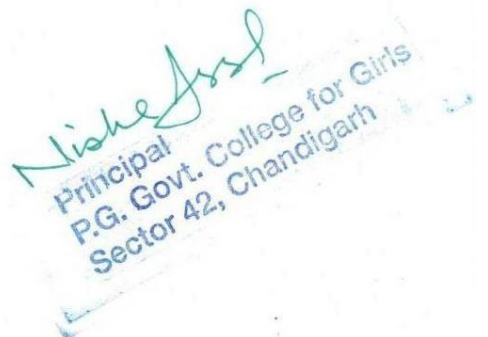 Principal
P.G. Govt. College for Girls
Sector 42, Chandigarh